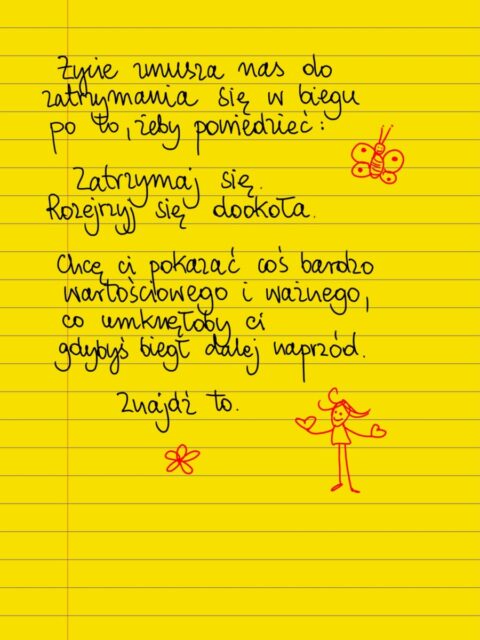 Życie zmusza nas do
zatrzymania się w biegu
po to, żeby powiedzieć:
Zatrzymaj się.
Rozejrzyj się dookoła.
Chcę ci pokazać coś bardzo
wartościowego i ważnego,
co umknęłoby ci
gdybyś biegł dalej naprzód.
Znajdź to.